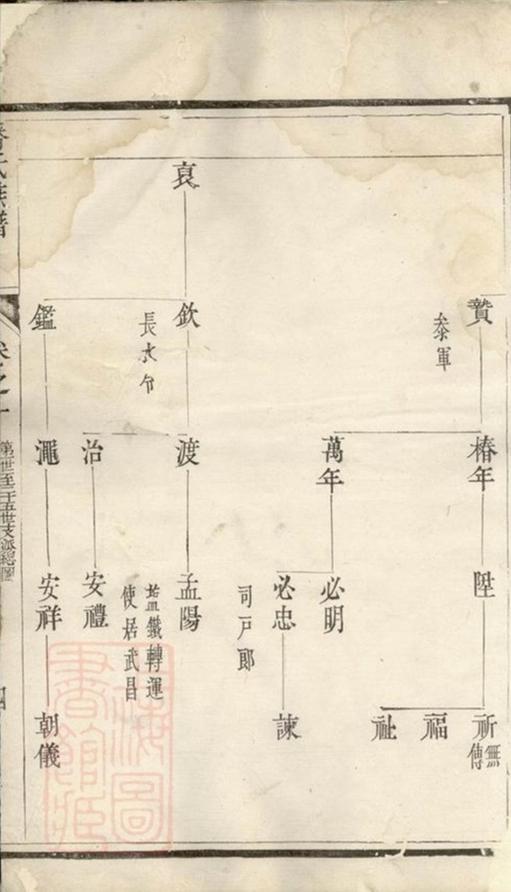 贊
叅軍
椿年
陞
祈
無傳
福
祉
萬年
必明
必忠
司戸郎
諫
裒
欽
長水令
渡
孟陽
盐鐵轉運
使居武昌
治
安禮
鑑
澠
安祥
朝儀
氏族譜
卷之一
第一世至二十五世支派總圖